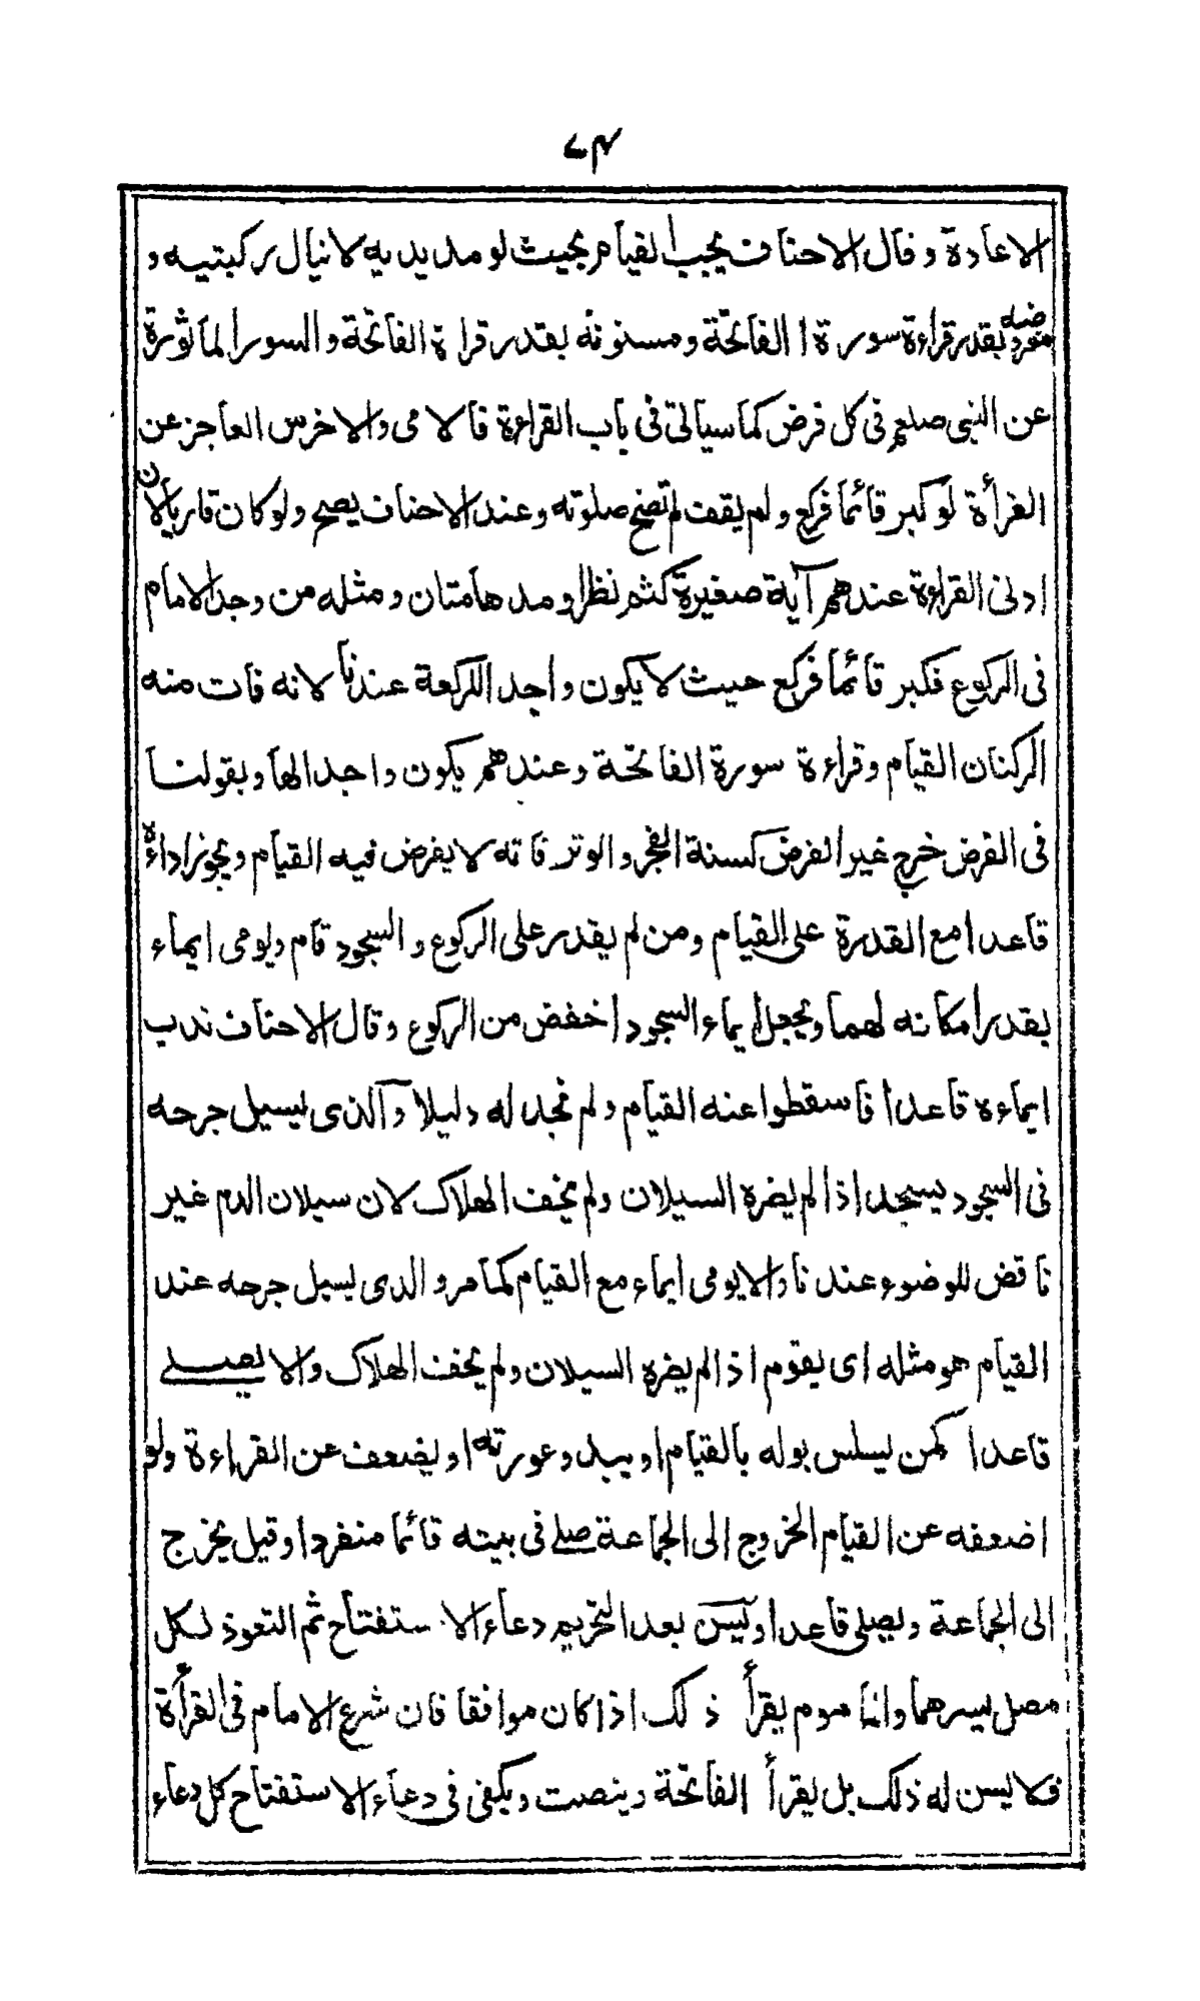 ٧٤
الاعادة و قال الاحناف يجب القيام بحيث لو مد يديه لا ينال ركبتيه و
مفروضه بقدر قراءة سورة الفاتحة و مسنونه بقدر قراة الفاتحة و السور الماثورة
عن النبي صلعم في كل فرض كما سياتي في باب القراءة فالامي والاخرس العاجز عن
القرأة لو كبر قائما فركع و لم يقف لم تصح صلوته و عند الاحناف يصح و لو كان قاريا لان
ادنى القراءة عندهم آية صغيرة كثم نظر او مدهامتان و مثله من وجد الامام
في الركوع فكبر قائما فركع حيث لا يكون واجد الركعة عندنا لانه فات منه
الركنان القيام و قراءة سورة الفاتحة و عندهم يكون واجدا لها و بقولنا
في الفرض خرج غير الفرض كسنة الفجر و الوتر فانه لا يفرض فيه القيام و يجوز اداءه
قاعدا مع القدرة على القيام و من لم يقدر على الركوع و السجود قام و يومي ايماء
بقدر امكانه لهما و يجعل ايماء السجود اخفض من الركوع و قال الاحناف ندب
ايماءه قاعدا فاسقطوا عنه القيام و لم نجد له دليلا و الذى يسيل جرحه
في السجود يسجد اذا لم يضره السيلان و لم يخف الهلاك لان سيلان الدم غير
ناقض للوضوء عندنا و الا يومي ايماء مع القيام كما مر و الذى يسيل جرحه عند
القيام هو مثله اى يقوم اذا لم يضره السيلان و لم يخف الهلاك و الا يصلے
قاعدا كمن يسلس بوله بالقيام او يبدو عورته او يضعف عن القراءة و لو
اضعفه عن القيام الخروج الى الجماعة صلے في بيته قائما منفردا و قيل يخرج
الى الجماعة و يصلي قاعدا و يسن بعد التحريم دعاء الاستفتاح ثم التعوذ لكل
مصل يسرهما و المأموم يقرأ ذلك اذا كان موافقا فان شرع الامام في القرأة
فلا يسن له ذلك بل يقرأ الفاتحة و ينصت و يكفي في دعاء الاستفتاح كل دعاء